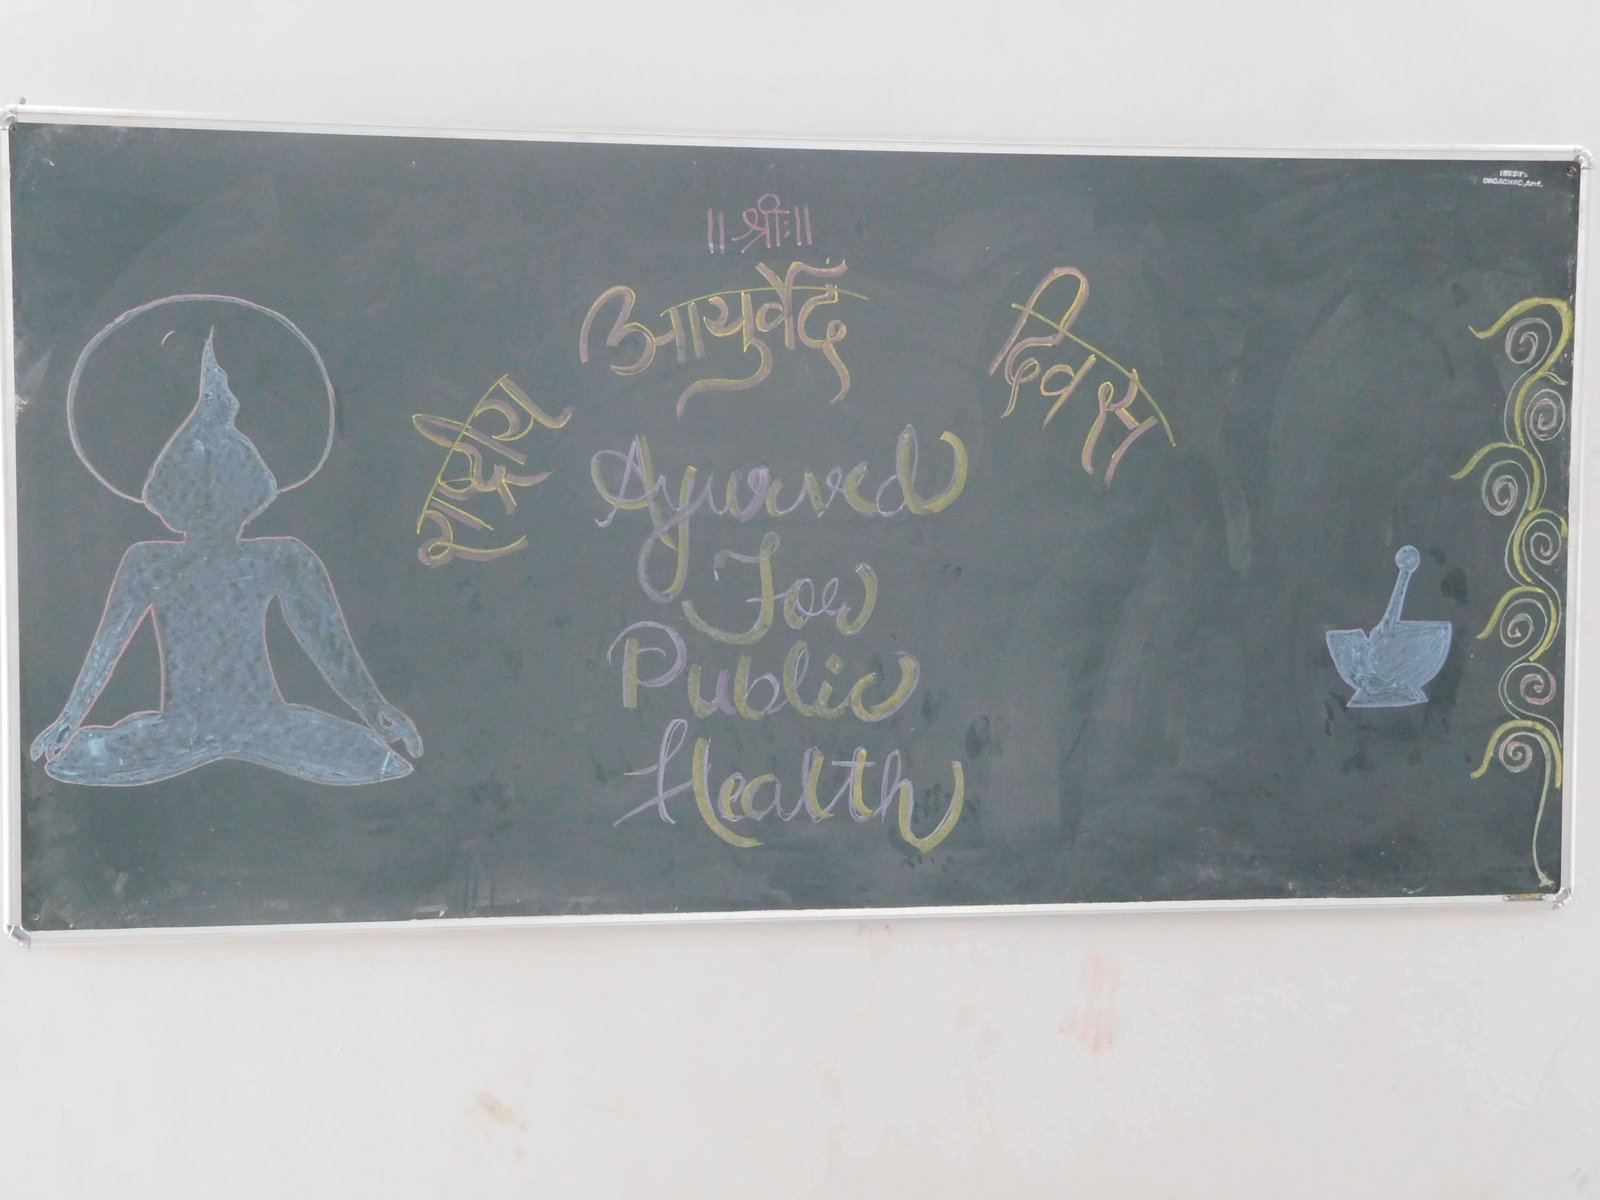 ॥ श्रीः॥
राष्ट्रीय आयुर्वेद दिवस
Ayurved
For
Public
Health